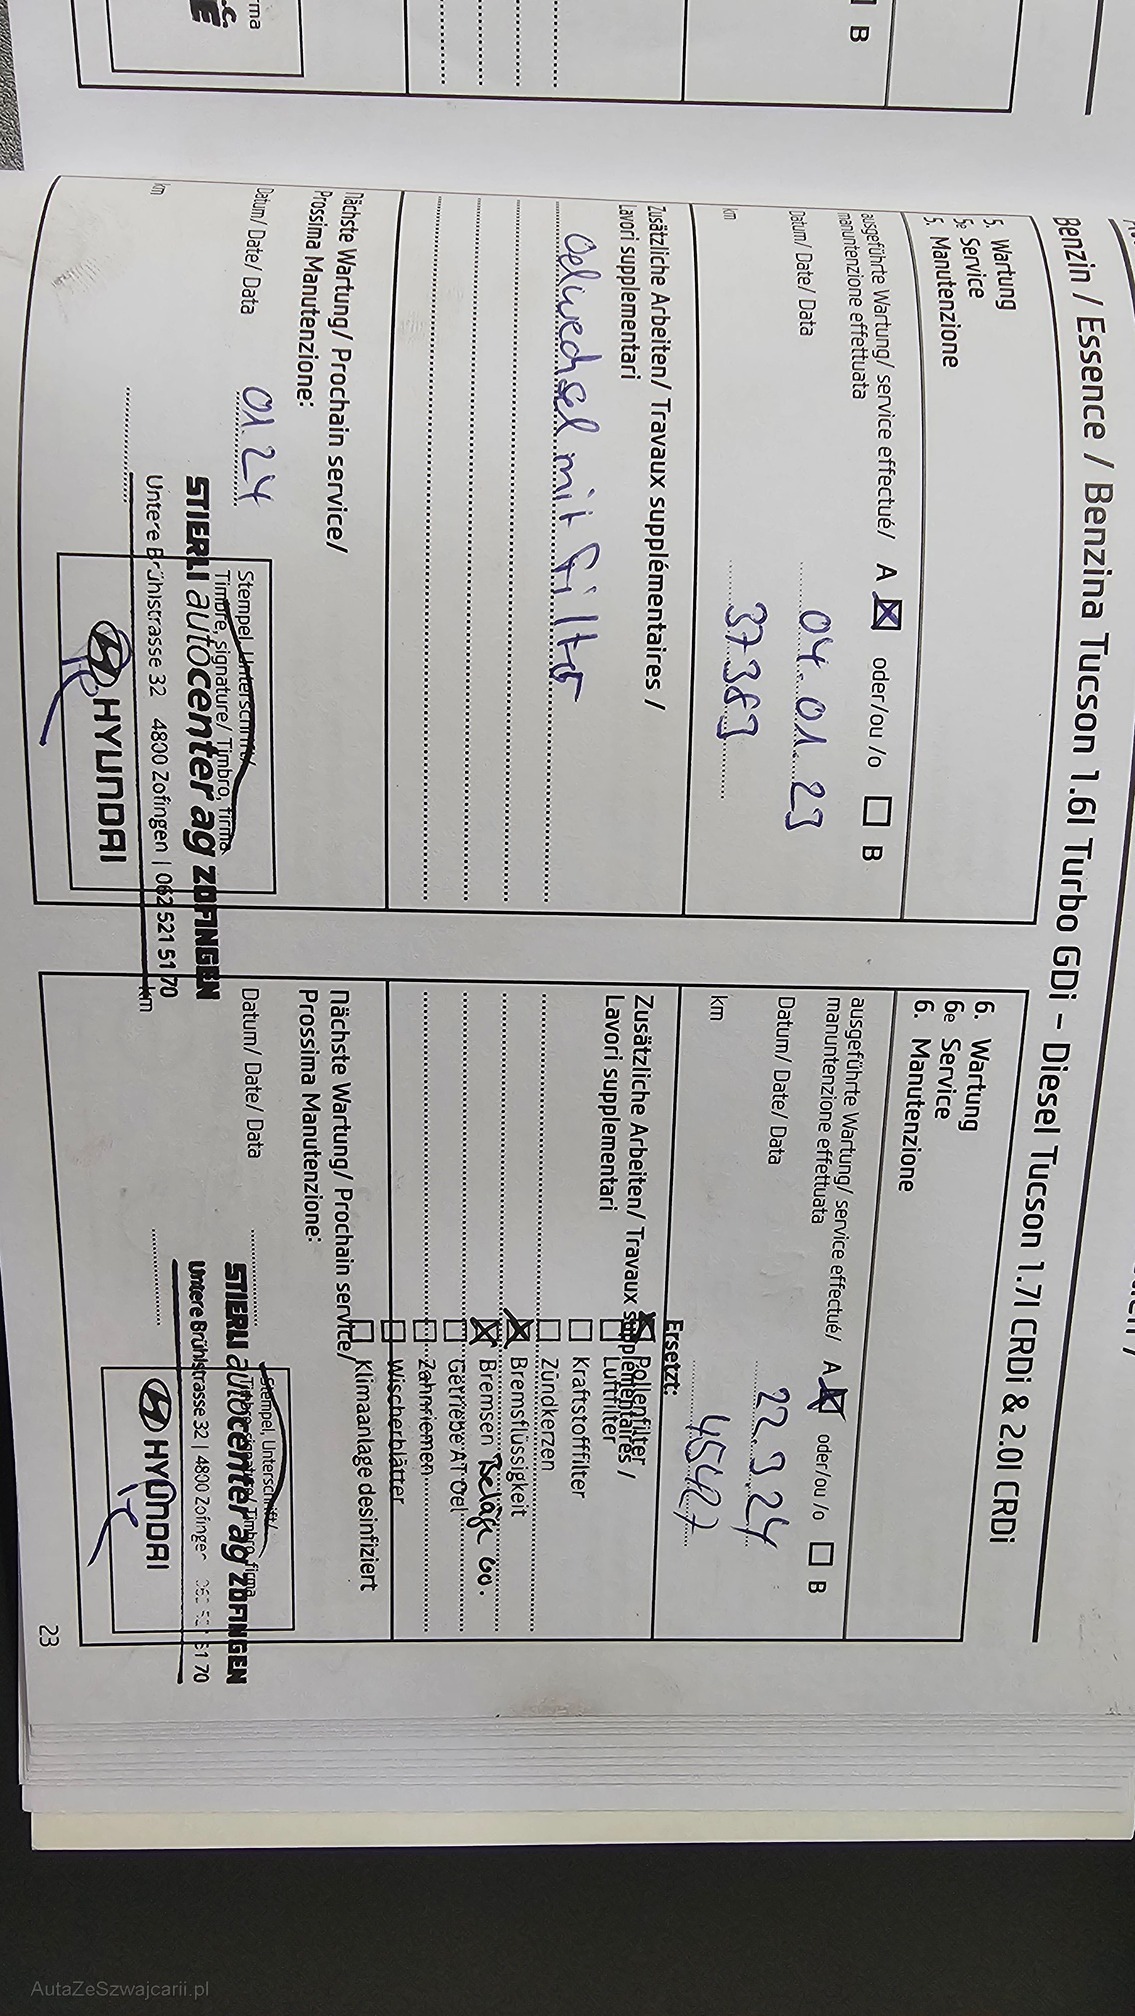 Benzin / Essence / Benzina Tucson 1.6l Turbo GDi – Diesel Tucson 1.7l CRDi & 2.0l CRDi
5. Wartung
5e Service
5. Manutenzione
ausgeführte Wartung/ service effectué/ A ☒ oder/ou /o ☐ B
manuntenzione effettuata
Datum/ Date/ Data 04.01.23
km 37383
Zusätzliche Arbeiten/ Travaux supplémentaires /
Lavori supplementari
Oelwechsel mit Filter
Nächste Wartung/ Prochain service/
Prossima Manutenzione:
Datum/ Date/ Data 01.24
km
Stempel, Unterschrift/
Timbre, signature/ Timbro, firma
STIERLI autocenter ag ZOFINGEN
Untere Brühlstrasse 32 4800 Zofingen | 062 521 51 70
HYUNDAI
6. Wartung
6e Service
6. Manutenzione
ausgeführte Wartung/ service effectué/ A ☒ oder/ou /o ☐ B
manuntenzione effettuata
Datum/ Date/ Data 22.9.24
km 45427
Zusätzliche Arbeiten/ Travaux supplémentaires /
Lavori supplementari
Ersetzt:
☒ Pollenfilter
☐ Luftfilter
☐ Kraftstofffilter
☐ Zündkerzen
☒ Bremsflüssigkeit
☒ Bremsen Beläge
☐ Getriebe AT Oel
☐ Zahnriemen
☐ Wischerblätter
☐ Klimaanlage desinfiziert
Nächste Wartung/ Prochain service/
Prossima Manutenzione:
Datum/ Date/ Data
km
Stempel, Unterschrift/
Timbro, firma
STIERLI autocenter ag ZOFINGEN
Untere Brühlstrasse 32 | 4800 Zofingen 51 70
HYUNDAI
23
B
firma
AutaZeSzwajcarii.pl